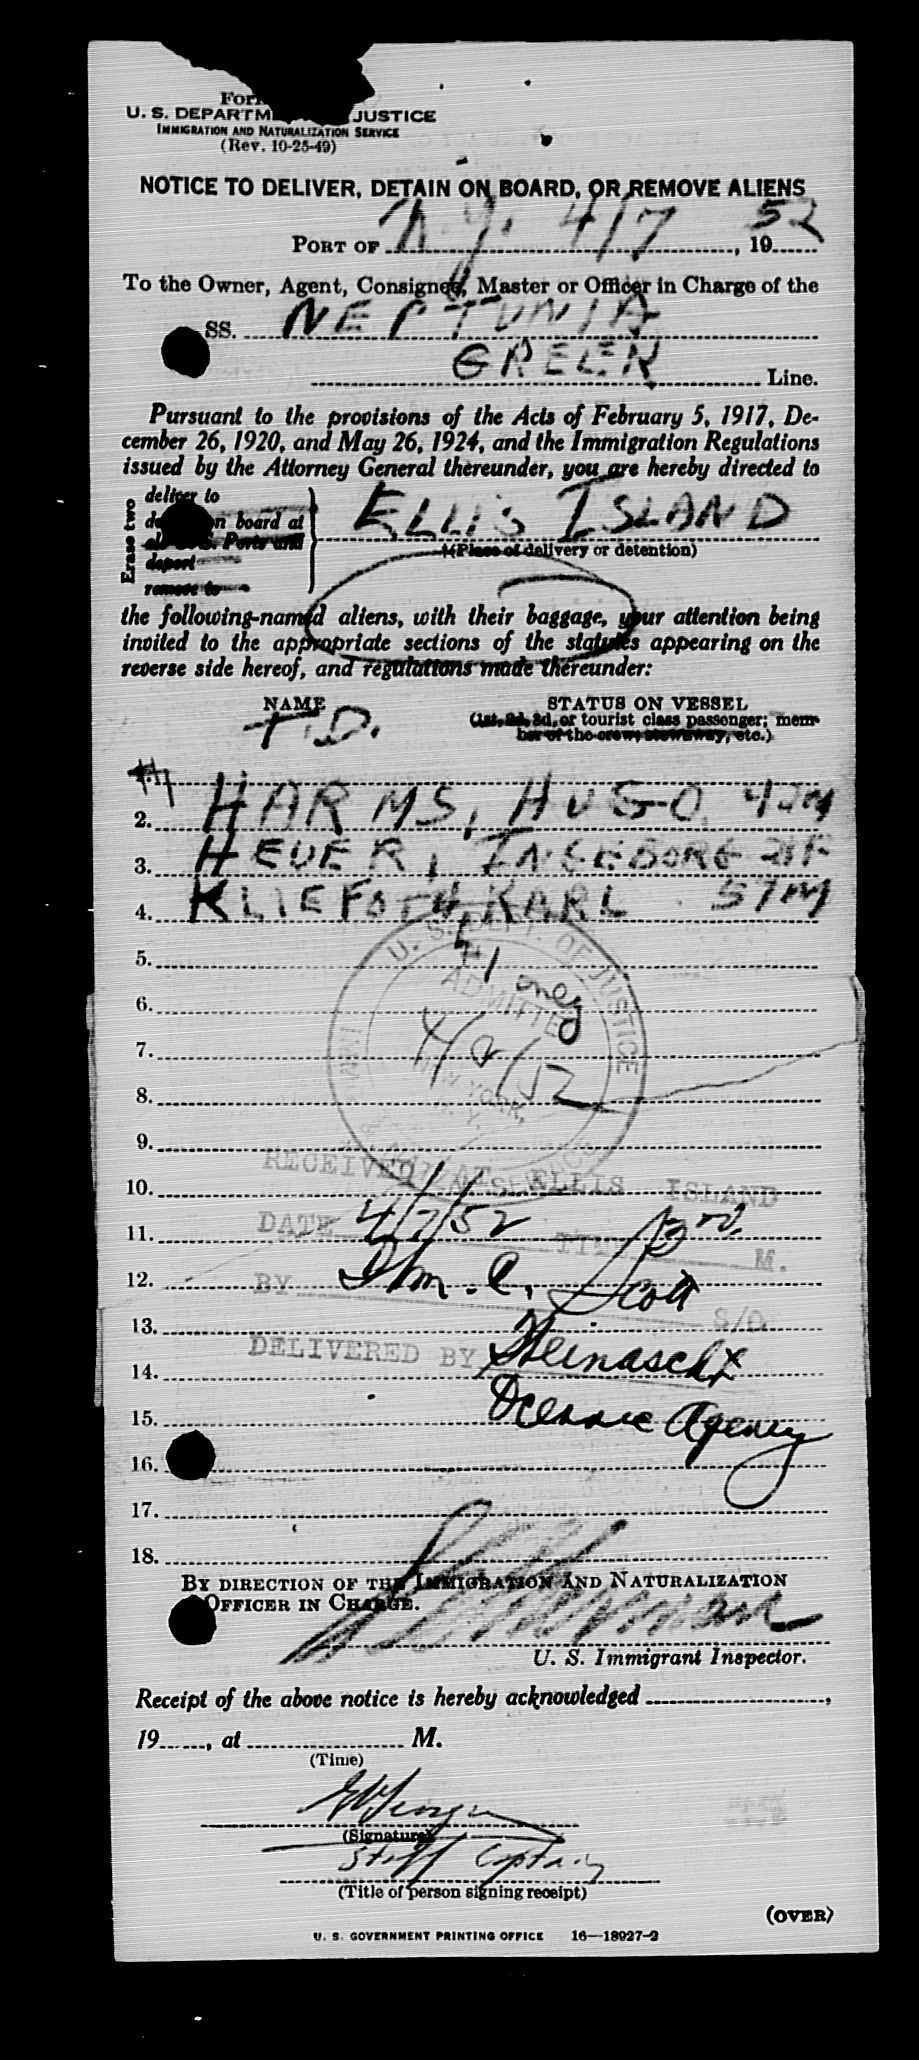 U. S. DEPARTM JUSTICE
IMMIGRATION AND NATURALIZATION SERVICE
(Rev. 10-25-49)
NOTICE TO DELIVER, DETAIN ON BOARD, OR REMOVE ALIENS
PORT OF N.Y. 4/7, 1952
To the Owner, Agent, Consignee, Master or Officer in Charge of the
SS. NEPTUNIA
GREEK Line.
Pursuant to the provisions of the Acts of February 5, 1917, De-
cember 26, 1920, and May 26, 1924, and the Immigration Regulations
issued by the Attorney General thereunder, you are hereby directed to
Erase two
deliver to
on board at
U.S. Ports and
deport
remove to
ELLIS ISLAND
(Place of delivery or detention)
the following-named aliens, with their baggage, your attention being
invited to the appropriate sections of the statutes appearing on the
reverse side hereof, and regulations made thereunder:
NAME
STATUS ON VESSEL
(1st, 2d, 3d, or tourist class passenger; mem-
ber of the crew, stowaway, etc.)
T.D.
#1
2. HARMS, HUGO 42M
3. HEUER, INGEBORG F
4. KLIEFOTH, KARL 57M
5.
#1 only
6.
7.
8.
9.
U. S. DEPT. OF JUSTICE
ADMITTED
NEW YORK, N. Y.
RECEIVED AT ELLIS ISLAND
10.
DATE 4/7/52 M.
11.
12.
BY Wm. C. Scott S/O
13.
DELIVERED BY
14.
15. Agency
16.
17.
18.
BY DIRECTION OF THE IMMIGRATION AND NATURALIZATION
OFFICER IN CHARGE.
U. S. Immigrant Inspector.
Receipt of the above notice is hereby acknowledged ,
19 , at M.
(Time)
(Signature)
Staff Captain
(Title of person signing receipt)
(OVER)
U. S. GOVERNMENT PRINTING OFFICE 16—18927-2